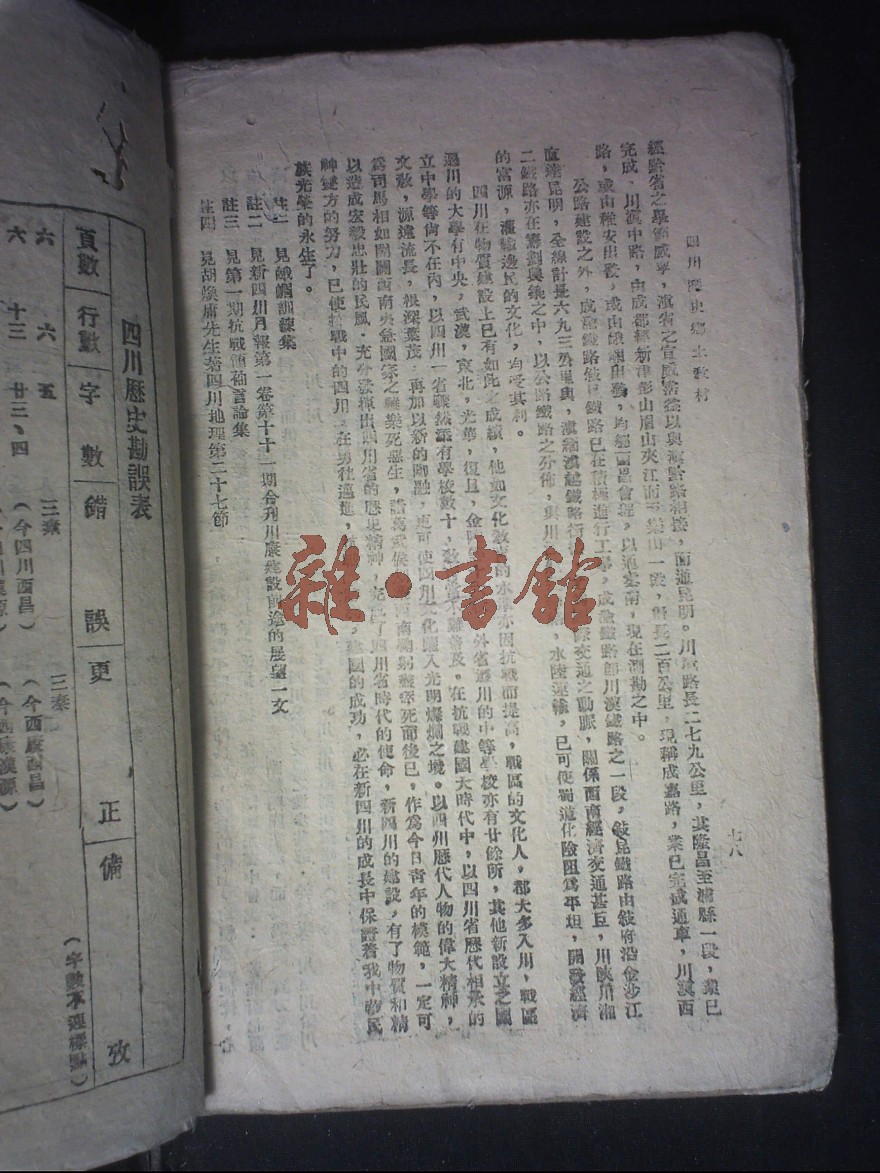 四川歷史鄉土教材
七八
經黔省之畢節威寧，滇省之宣威霑益以與滇黔路相接，而通昆明。川滇路長二七九公里，其隆昌至瀘縣一段，業已
完成，川滇中路，由成都經新津彭山眉山夾江而至樂山一段，計長二百公里，現稱成嘉路，業已完成通車，川滇西
路，或由雅安出發，或由峨嵋出發，均經西昌會理，以通雲南，現在測勘之中。
公路建設之外，成渝鐵路敍昆鐵路已在積極進行工事，成渝鐵路卽川漢鐵路之一段，敍昆鐵路由敍府沿金沙江
直達昆明，全線計長六九三公里與，滇緬滇越鐵路行
交通之動脈，關係西南經濟交通甚巨，川陝川湘
二鐵路亦在籌劃興築之中，以公路鐵路之分佈，與川
水陸運輸，已可使蜀道化險阻爲平坦，開發經濟
的富源，灌輸邊民的文化，均受其利。
四川在物質建設上已有如此之成績，他如文化教育的水準亦因抗戰而提高，戰區的文化人，都大多入川，戰區
遷川的大學有中央，武漢，東北，光華，復旦，金陵
外省遷川的中等學校亦有廿餘所，其他新設立之國
立中學等尙不在內，以四川一省驟然添有學校數十，
不難普及。在抗戰建國大時代中，以四川省歷代相承的
文教，源遠流長，根深葉茂，再加以新的陶融，更可使四川文化匯入光明燦爛之境。以四川歷代人物的偉大精神，
爲司馬相如開闢西南夷急國家之難樂死惡生，諸葛武侯
南鞠躬盡瘁死而後已，作爲今日青年的模範，一定可
以造成宏毅忠壯的民風，充分發揮出四川省的歷史精神，完成了四川省時代的使命，新四川的建設，有了物質和精
神雙方的努力，已使抗戰中的四川，在勇往邁進，
建國的成功，必在新四川的成長中保證着我中華民
族光榮的永生了。
註一　見峨嵋訓練集
註二　見新四川月報第一卷第十十一期合刋川康建設前途的展望一文
註三　見第一期抗戰領袖言論集
註四　見胡煥庸先生著四川地理第二十七節
雜·書館
四川歷史勘誤表
（字數不連標點）
頁數 行數 字數 錯誤 更正 備攷
六 六 五 三秦 三秦
六 十三 廿三、四 （今四川西昌） （今西康西昌）